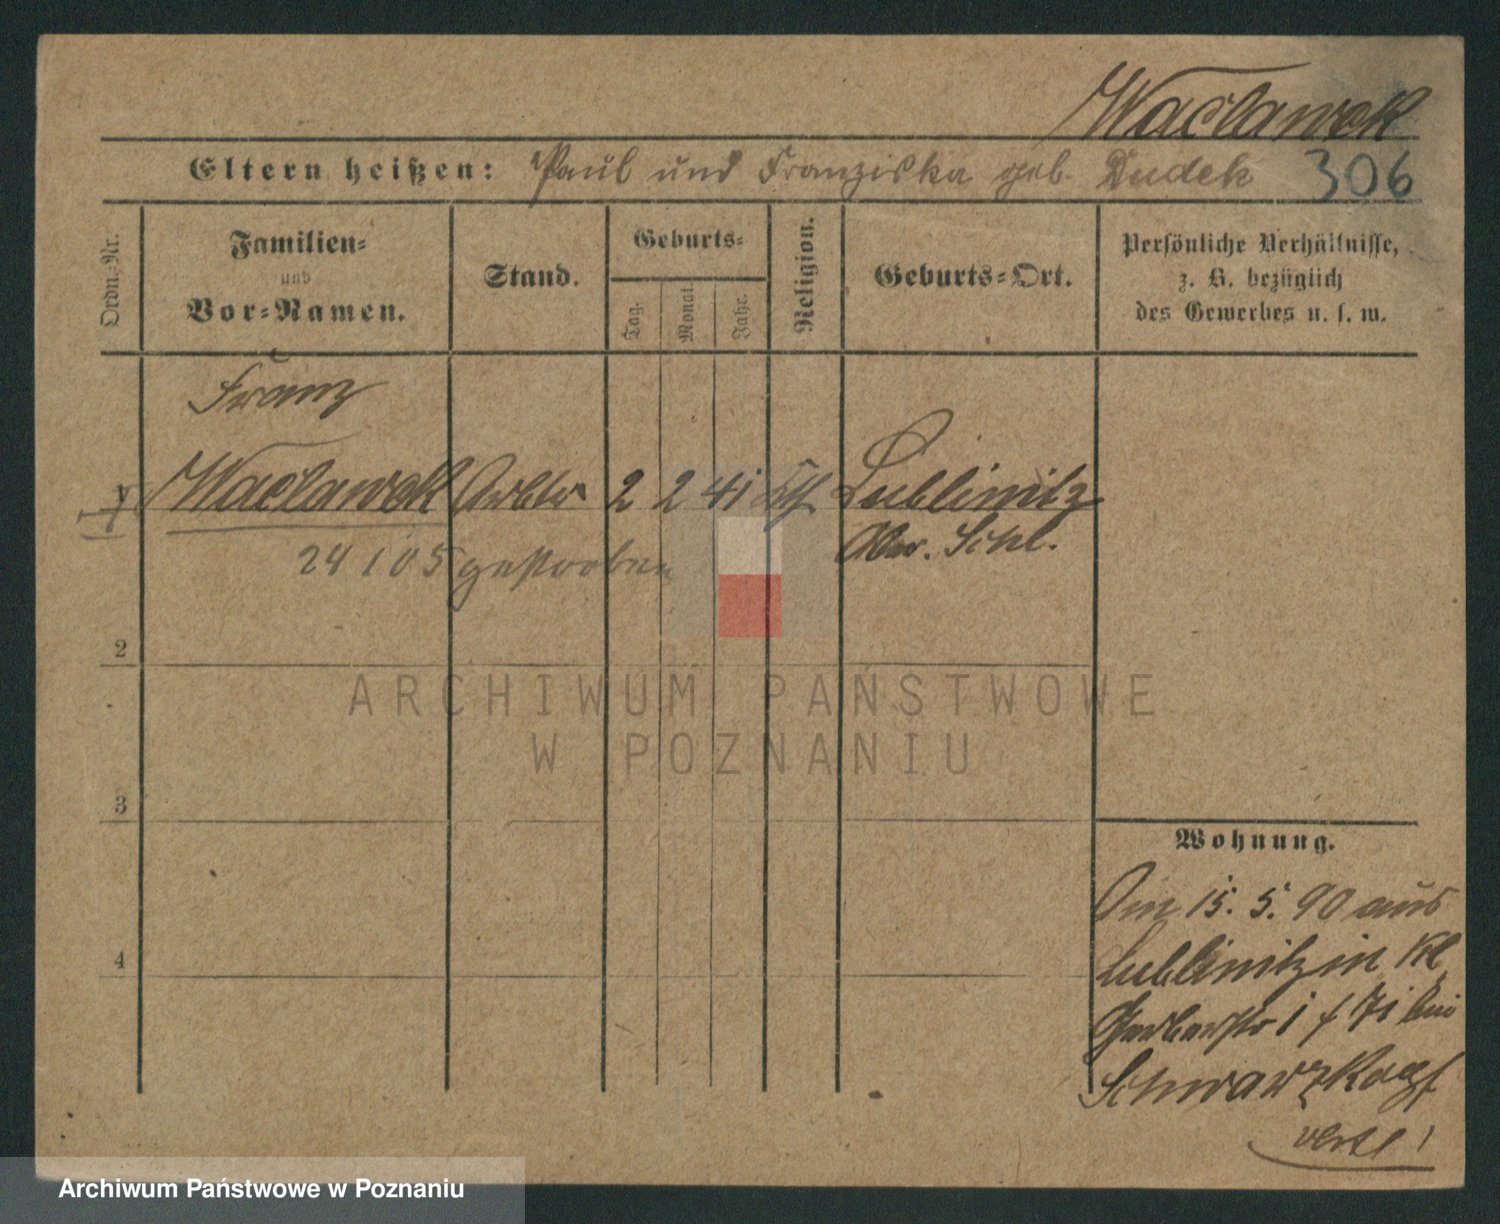 Wacławek
Eltern heißen: Paul und Franziska geb. Dudek 306
Ordn.-Nr.
Familien-
und
Vor-Namen.
Stand.
Geburts-
Tag.
Monat.
Jahr.
Religion.
Geburts-Ort.
Persönliche Verhältnisse,
z. B. bezüglich
des Gewerbes u. s. w.
Franz
1 Wacławek Arbtr 2 2 41 kth Lublinitz
Ober. Schl.
24 1 05 gestorben
2
3
4
Wohnung.
Am 15. 5. 90 aus
Lublinitz in Kl
Gerberstr 1 f 7i bei
Schwarzkopf
ARCHIWUM PAŃSTWOWE
W POZNANIU
Archiwum Państwowe w Poznaniu